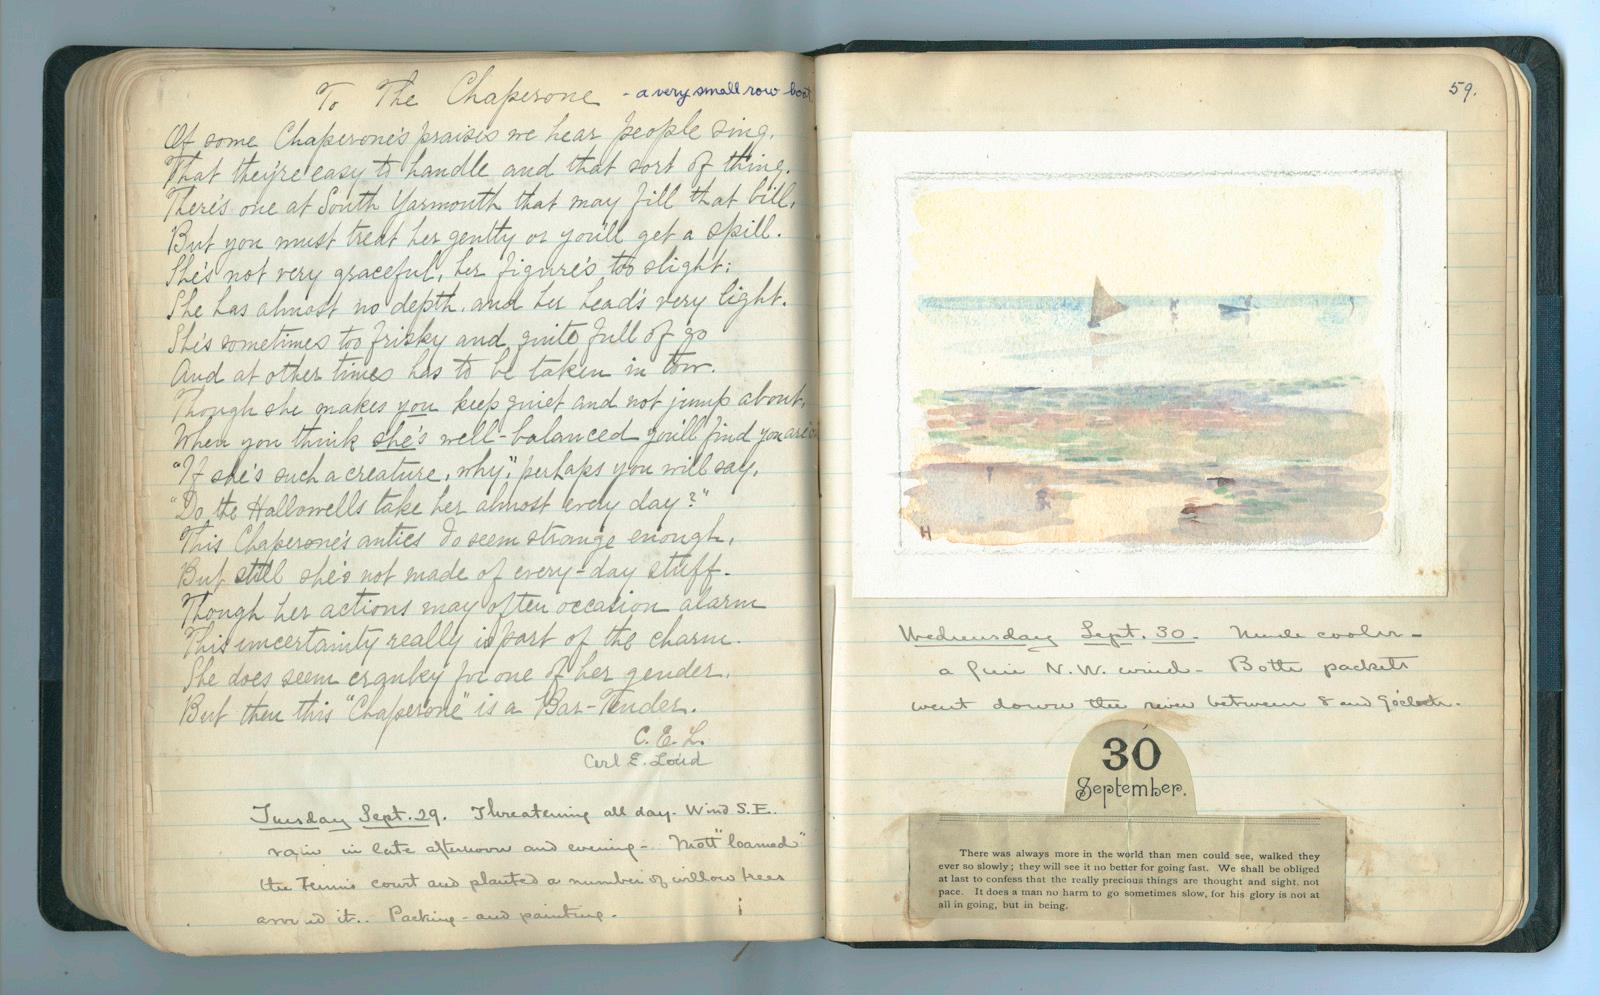 To The Chaperone - a very small row-boat
Of some Chaperone's praises we hear people sing,
That they're easy to handle and that sort of thing.
There's one at South Yarmouth that may fill that bill,
But you must treat her gently or you'll get a spill.
She's not very graceful, her figure's too slight;
She has almost no depth, and her head's very light.
She's sometimes too frisky and quite full of go
And at other times has to be taken in tow.
Though she makes you keep quiet and not jump about,
When you think she's well-balanced you'll find you are
"If she's such a creature, why," perhaps you will say,
"Do the Hallowells take her almost every day?"
This Chaperone's antics do seem strange enough,
But still she's not made of every-day stuff.
Though her actions may often occasion alarm
This uncertainty really is part of the charm.
She does seem cranky for one of her gender,
But then this "Chaperone" is a Bar-Tender.
C. E. L.
Carl E. Loud
Tuesday Sept. 29. Threatening all day. Wind S.E.
rain in late afternoon and evening - Mott "loamed"
the Tennis court and planted a number of willow trees
around it. Packing - and painting -
59.
H
Wednesday Sept. 30 - Much cooler -
a fine N.W. wind - Both packets
went down the river between 8 and 9 o'clock.
30
September.
There was always more in the world than men could see, walked they
ever so slowly; they will see it no better for going fast. We shall be obliged
at last to confess that the really precious things are thought and sight, not
pace. It does a man no harm to go sometimes slow, for his glory is not at
all in going, but in being.